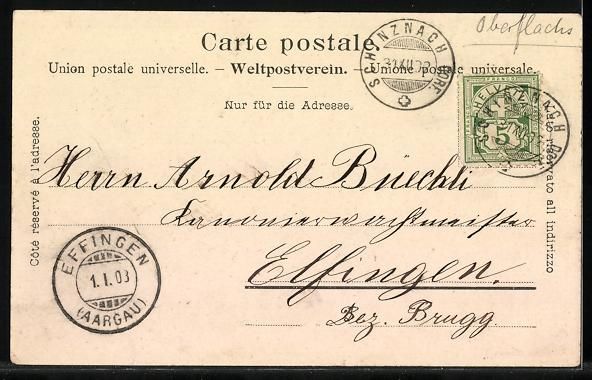 Oberflachs
Carte postale.
Union postale universelle. – Weltpostverein. – Unione postale universale.
Nur für die Adresse.
Côté réservé à l'adresse.
Lato riservato all indirizzo
SCHINZNACH DORF
31.XII.02
HELVETIA
FRANCO
5
SCHINZNACH DORF
Herrn Arnold Büechli
Kanonierwachtmeister
Elfingen.
Bez. Brugg.
EFFINGEN
1.I.03
(AARGAU)